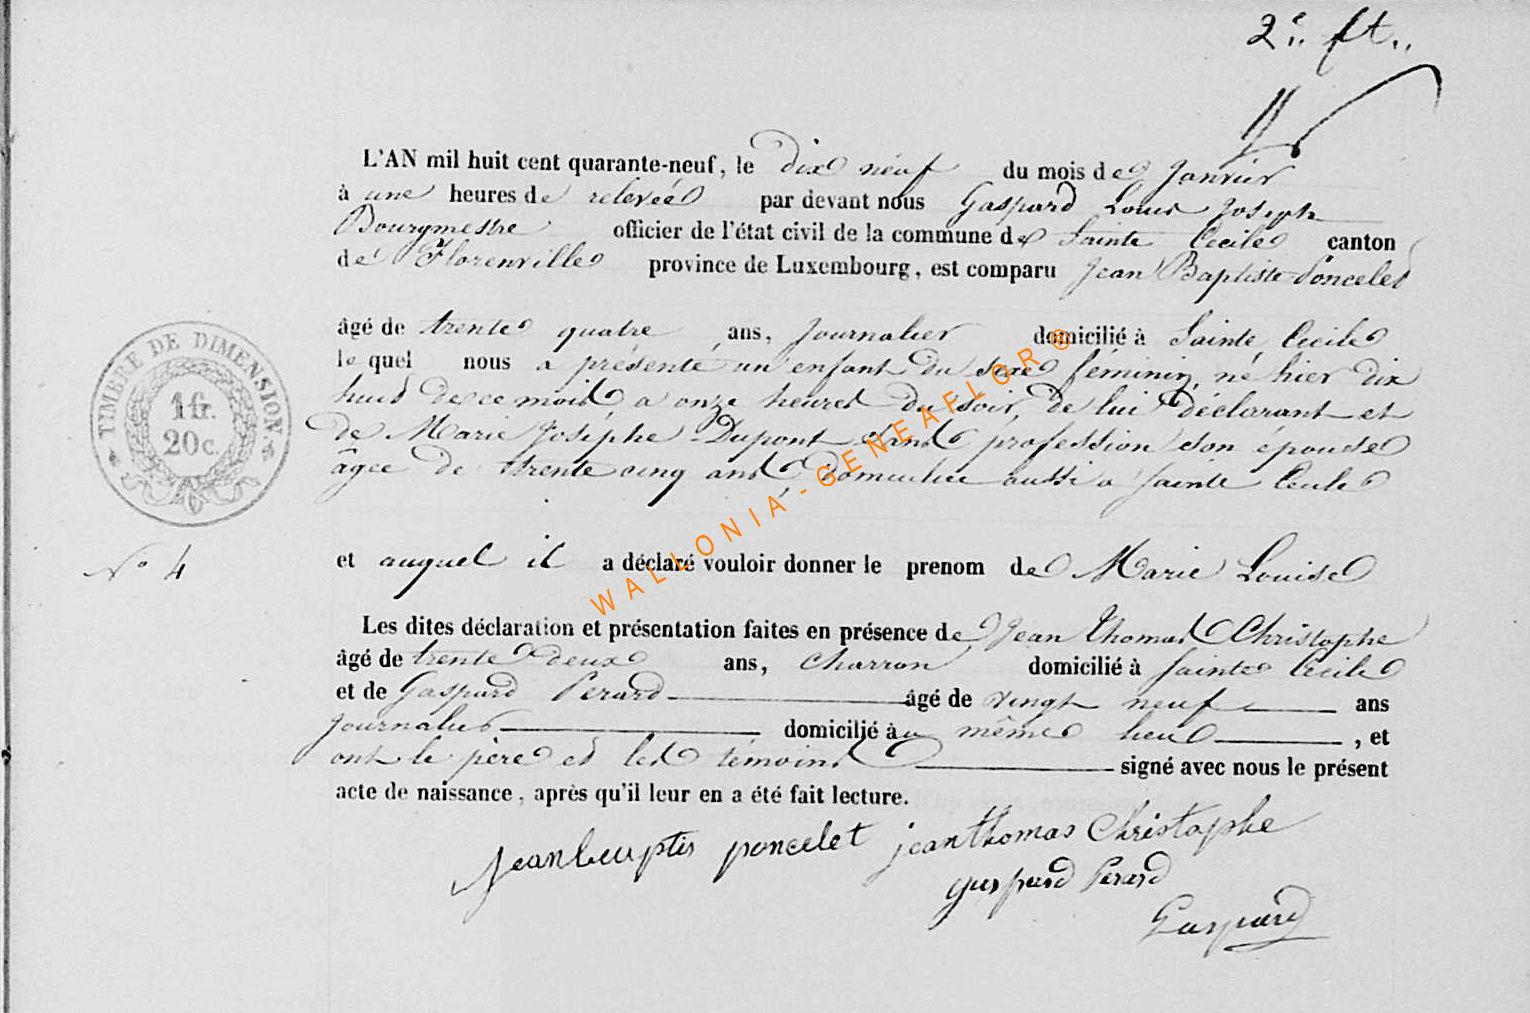 2e ft.
L'AN mil huit cent quarante-neuf, le dix néuf du mois de Janvier
à une heures de relevéé par devant nous Gaspard Louis Joseph
Bourgmestre officier de l'état civil de la commune de Sainte Cecile canton
de Florenville province de Luxembourg, est comparu Jean Baptiste Poncelet
âgé de trente quatre ans, Journalier domicilié à Sainte Cecile
le quel nous a présenté un enfant du sexe féminin, né hier dix
huit de ce mois a onze heures du soir, de lui déclarant et
de Marie Joséphe Dupont sans profession son épouse
âgée de trente cinq ans, Domiciliée aussi a Sainte Cecile
et auquel il a déclaré vouloir donner le prenom de Marie Louise
Les dites déclaration et présentation faites en présence de Jean Thomas Christophe
âgé de trente deux ans, charron domicilié à Sainte Cecile
et de Gaspard Perard âgé de vingt neuf ans
Journalier domicilié à au même lieu, et
ont le père et les témoins signé avec nous le présent
acte de naissance, après qu'il leur en a été fait lecture.
Jean baptis poncelet jean thomas Christophe
gaspard Perard
Gaspard
TIMBRE DE DIMENSION
1 fr.
20 c.
No 4
WALLONIA-GENEAFLOR©